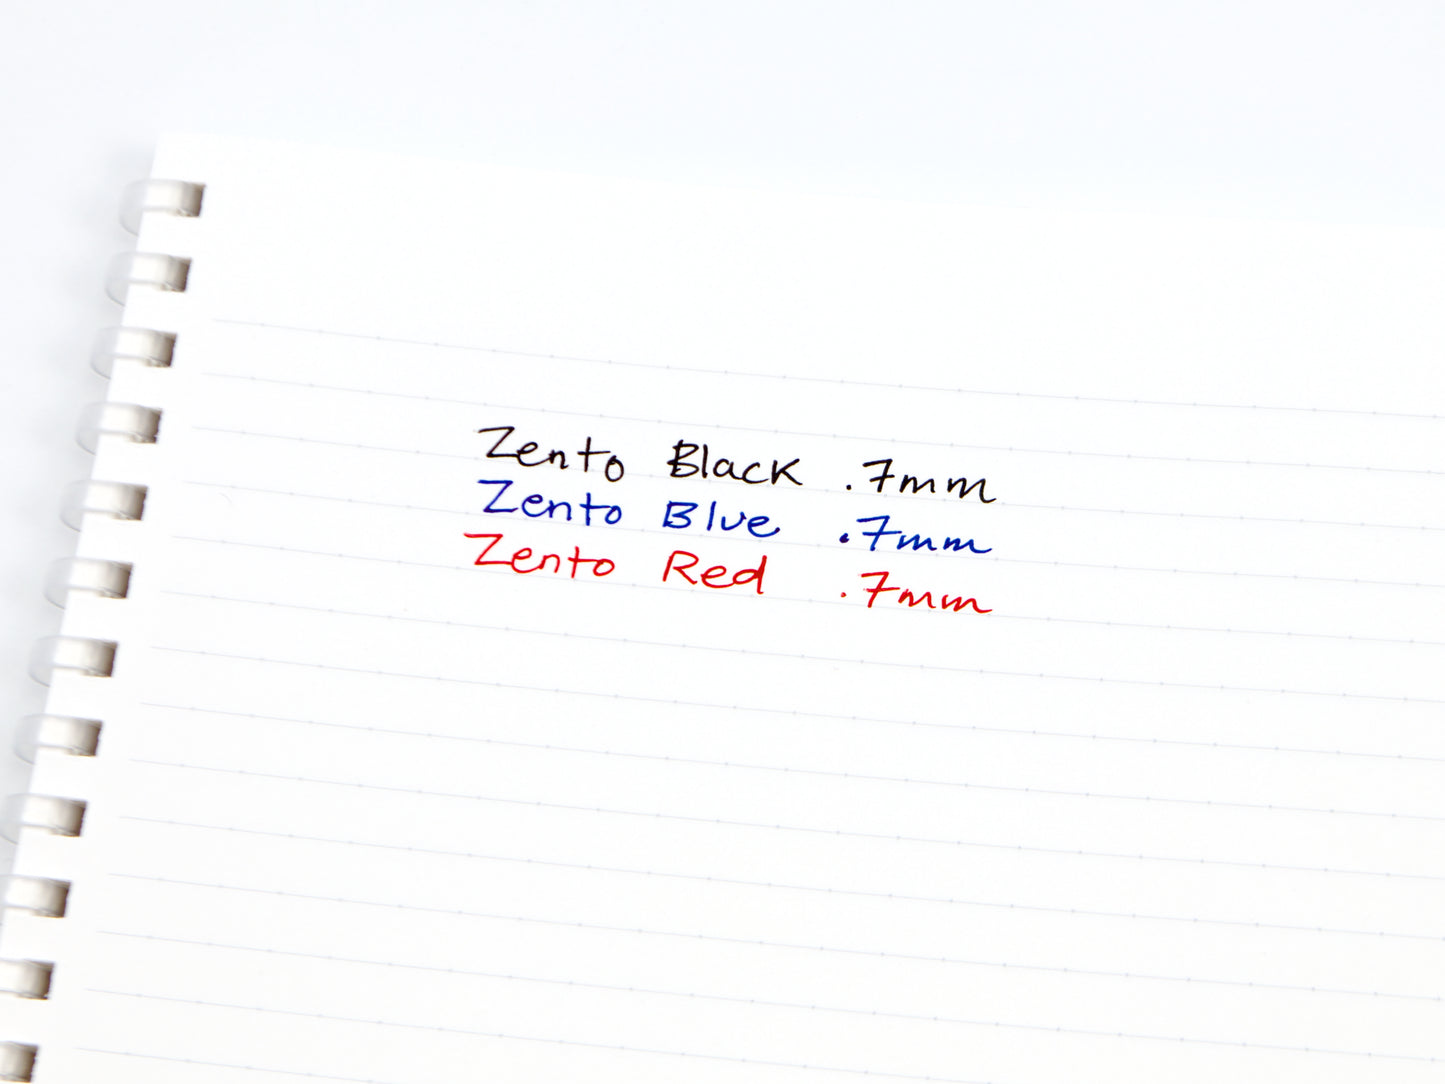 Zento Black .7mm
Zento Blue .7mm
Zento Red .7mm